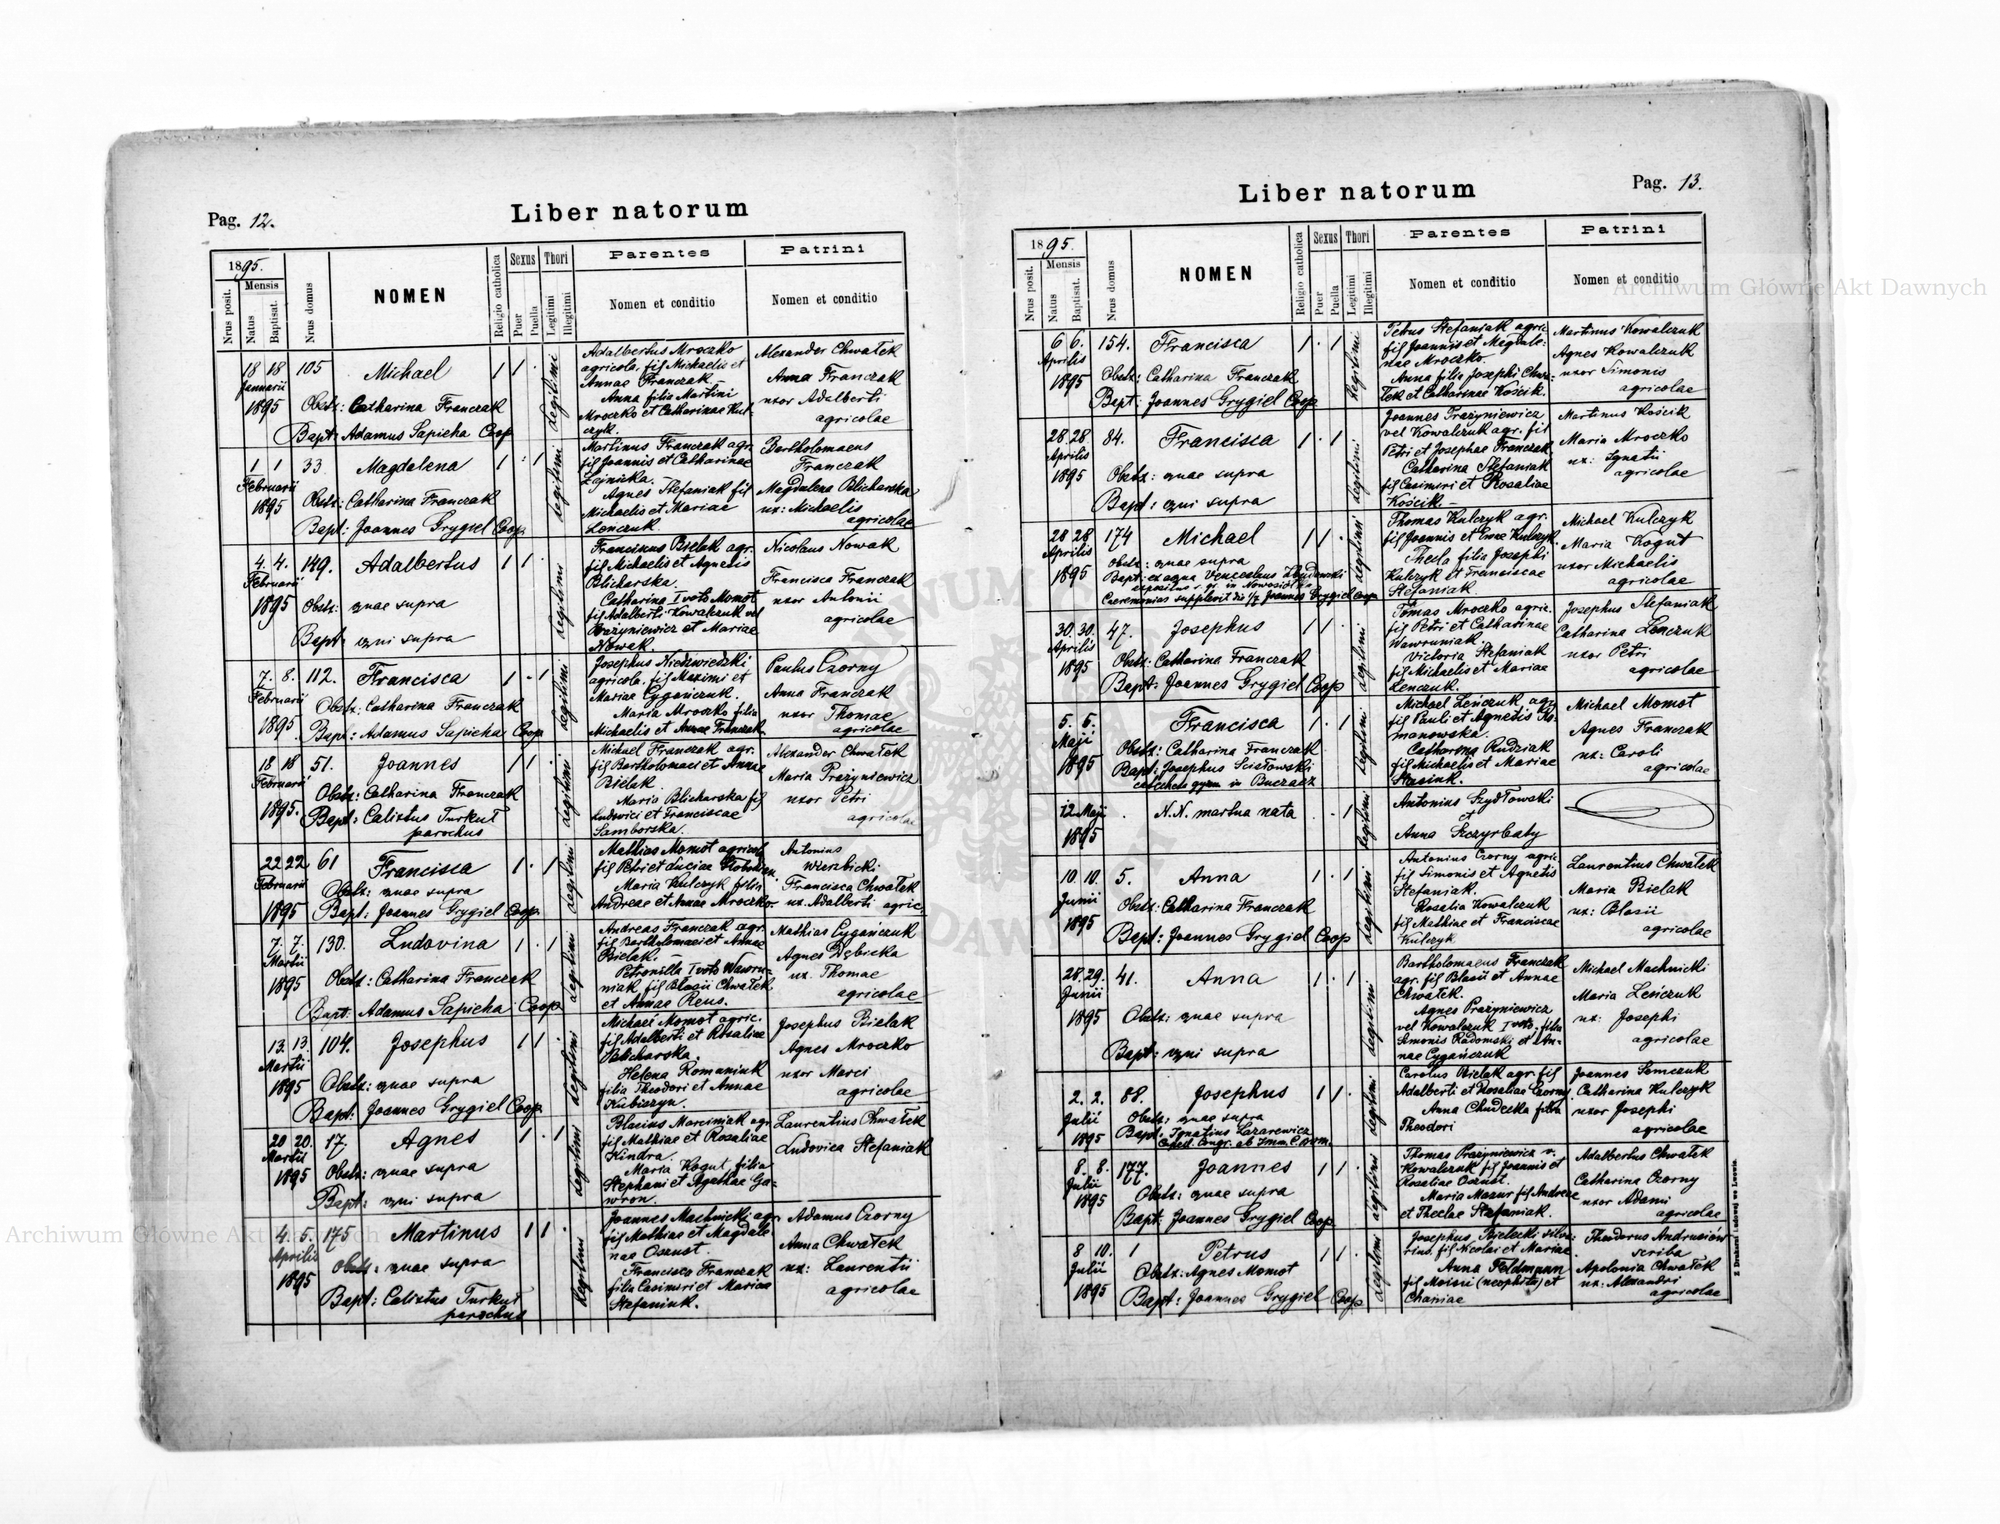 Pag. 12.
Liber natorum
1895.
Mensis
Nrus posit.
Natus
Baptisat.
Nrus domus
NOMEN
Religio catholica
Sexus
Puer
Puella
Thori
Legitimi
Illegitimi
Parentes
Nomen et conditio
Patrini
Nomen et conditio
18 18 105 Michael 1 1 . legitimi
Januarii
1895 Obstx: Catharina Franczak
Bapt: Adamus Sapieha Coop
Adalbertus Mroczko
agricola, fil Michaelis et
Annae Franczak.
Anna filia Martini
Mroczko et Catharinae Kul-
czyk.
Alexander Chwałek
Anna Franczak
uxor Adalberti
agricolae
1 1 33 Magdalena 1 . 1 legitimi
Februarii
1895 Obstx: Catharina Franczak
Bapt: Joannes Grygiel Coop.
Martinus Franczak agr.
fil Joannis et Catharinae
Zajnicka.
Agnes Stefaniak fil
Michaelis et Mariae
Lenczuk.
Bartholomaeus
Franczak
Magdalena Blicharska
ux: Michaelis
agricolae
4. 4. 149. Adalbertus 1 1 . legitimi
Februarii
1895 Obstx: quae supra
Bapt: qui supra
Franciscus Bielak agr.
fil Michaelis et Agnetis
Blicharska.
Catharina I voto Momot
fil Adalberti Kowalczuk vel
Prażyniewicz et Mariae
Nowak.
Nicolaus Nowak
Francisca Franczak
uxor Antonii
agricolae
7. 8. 112. Francisca 1 . 1 legitimi
Februarii
Obstx: Catharina Franczak
1895. Bapt: Adamus Sapieha Coop
Josephus Niedzwiedzki
agricola, fil Maximi et
Mariae Cygańczuk.
Maria Mroczko filia
Michaelis et Annae Franczak
Paulus Czorny
Anna Franczak
uxor Thomae
agricolae
18 18 51. Joannes 1 1 . legitimi
Februarii
Obstx: Catharina Franczak
1895. Bapt: Calixtus Turkut
parochus
Michael Franczak agr.
fil Bartholomaei et Annae
Bielak
Maria Blicharska fil
Ludovici et Franciscae
Samborska.
Alexander Chwałek
Maria Prażyniewicz
uxor Petri
agricolae
22 22 61 Francisca 1 . 1 legitimi
Februarii
Obstx: quae supra
1895 Bapt: Joannes Grygiel Coop.
Mathias Momot agricol.
fil Petri et Luciae
Maria Kulczyk filia
Andreae et Annae Mroczko.
Antonius
Wierzbicki
Francisca Chwałek
ux. Adalberti agric.
7. 7. 130. Ludovina 1 . 1 legitimi
Martii
1895 Obstx: Catharina Franczak
Bapt: Adamus Sapieha Coop
Andreas Franczak agr.
fil Bartholomaei et Annae
Bielak.
Petronilla I voto Wawru-
niak, fil Blasii Chwałek
et Annae Reus.
Mathias Cygańczuk
Agnes Dębicka
ux. Thomae
agricolae
13. 13 104. Josephus 1 1 legitimi
Martii
1895 Obstx: quae supra
Bapt: Joannes Grygiel Coop.
Michael Momot agric.
fil Adalberti et Rosaliae
Blicharska.
Helena Romaniuk
filia Theodori et Annae
Kubiczyn.
Josephus Bielak
Agnes Mroczko
uxor Marci
agricolae
20 20. 17. Agnes 1 . 1 legitimi
Martii
1895 Obstx: quae supra
Bapt: qui supra
Blasius Marciniak agr
fil Mathiae et Rosaliae
Kindra.
Maria Kogut filia
Stephani et Agathae Ga-
wron.
Laurentius Chwałek
Ludovica Stefaniak
4. 5. 175 Martinus 1 1 . legitimi
Aprilis
Obstx: quae supra
1895
Bapt: Calixtus Turkut
parochus
Joannes Machnicki agr.
fil Mathiae et Magdale-
nae Oszust.
Francisca Franczak
filia Casimiri et Mariae
Stefaniuk.
Adamus Czorny
Anna Chwałek
ux: Laurentii
agricolae
Pag. 13.
Liber natorum
1895.
Mensis
Nrus posit.
Natus
Baptisat.
Nrus domus
NOMEN
Religio catholica
Sexus
Puer
Puella
Thori
Legitimi
Illegitimi
Parentes
Nomen et conditio
Patrini
Nomen et conditio
6 6. 154. Francisca 1 . 1 legitimi
Aprilis
1895 Obstx: Catharina Franczak
Bapt: Joannes Grygiel Coop
Petrus Stefaniak agric.
fil Joannis et Magdale-
nae Mroczko.
Anna filia Josephi Chwa-
łek et Catharinae Kościk.
Martinus Kowalczuk
Agnes Kowalczuk
uxor Simonis
agricolae
28. 28. 84. Francisca 1 . 1 legitimi
Aprilis
1895 Obstx: quae supra
Bapt: qui supra
Joannes Prażyniewicz
vel Kowalczuk agr. fil
Petri et Josephae Franczak
Catharina Stefaniak
fil Casimiri et Rosaliae
Kościk.
Martinus Kościk
Maria Mroczko
ux: Ignatii
agricolae
28 28 174 Michael 1 1 . legitimi
Aprilis
Obstx: quae supra
1895 Bapt: ex aqua Venceslaus
Caeremonias supplevit die Joannes Grygiel Coop
Thomas Kulczyk agr.
fil Joannis et Evae Kulczyk.
Thecla filia Josephi
Kulczyk et Franciscae
Stefaniak.
Michael Kulczyk
Maria Kogut
uxor Michaelis
agricolae
30. 30. 47. Josephus 1 1 . legitimi
Aprilis
1895 Obstx: Catharina Franczak
Bapt: Joannes Grygiel Coop
Tomas Mroczko agric.
fil Petri et Catharinae
Wawruniak.
Victoria Stefaniak
fil Michaelis et Mariae
Lenczuk.
Josephus Stefaniak
Catharina Lenczuk
uxor Petri
agricolae
5. 6. Francisca 1 . 1 legitimi
Maji
Obstx: Catharina Franczak
1895 Bapt: Josephus Scisłowski
catecheta gymn in Buczacz
Michael Leńczuk agr.
fil Pauli et Agnetis Ro-
manowska.
Catharina Rudziak
fil Michaelis et Mariae
Stasiuk.
Michael Momot
Agnes Franczak
ux: Caroli
agricolae
12 Maji . N.N. mortua nata . . 1 legitimi
1895
Antonius Szydłowski
et
Anna Szczyrbaty
10. 10. 5. Anna 1 . 1 legitimi
Junii
Obstx: Catharina Franczak
1895
Bapt: Joannes Grygiel Coop
Antonius Czorny agric.
fil Simonis et Agnetis
Stefaniak.
Rosalia Kowalczuk
fil Mathiae et Franciscae
Kulczyk
Laurentius Chwałek
Maria Bielak
ux: Blasii
agricolae
28. 29. 41. Anna 1 . 1 legitimi
Junii
1895 Obstx: quae supra
Bapt: qui supra
Bartholomaeus Franczak
agr. fil Blasii et Annae
Chwałek.
Agnes Prażyniewicz
vel Kowalczuk I voto, filia
Simonis Radomski et An-
nae Cygańczuk
Michael Machnicki
Maria Leńczuk
ux: Josephi
agricolae
2. 2. 88. Josephus 1 1 . legitimi
Julii
Obstx: quae supra
1895 Bapt: Ignatius Lazarewicz
Congr. ab Imm. C.
Carolus Bielak agr. fil
Adalberti et Rosaliae Czorny
Anna Chudecka filia
Theodori
Joannes Semczuk
Catharina Kulczyk
uxor Josephi
agricolae
8. 8. 177. Joannes 1 1 . legitimi
Julii
Obstx: quae supra
1895 Bapt: Joannes Grygiel Coop
Thomas Prażyniewicz v.
Kowalczuk fil Joannis et
Rosaliae Oszust.
Maria Mazur fil Andreae
et Theclae Stefaniak.
Adalbertus Chwałek
Catharina Czorny
uxor Adami
agricolae
8 10. 1 Petrus 1 1 . legitimi
Julii
Obstx: Agnes Momot
1895 Bapt: Joannes Grygiel Coop
Josephus Bielecki
fil Nicolai et Mariae
Anna Feldmann
fil Moisii (neophita) et
Chaniae
Theodorus Andrusiów
scriba
Apolonia Chwałek
ux: Alexandri
agricolae
Z Drukarni Ludowej we Lwowie.
Archiwum Główne Akt Dawnych
Archiwum Główne Akt Dawnych